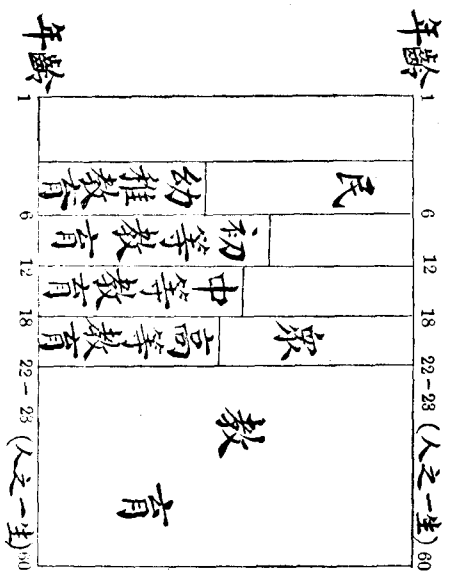 年齡 1 6 12 18 22-23 (人之一生) 60
民眾教育
幼稚教育
初等教育
中等教育
高等教育
年齡 1 6 12 18 22-23 (人之一生) 60